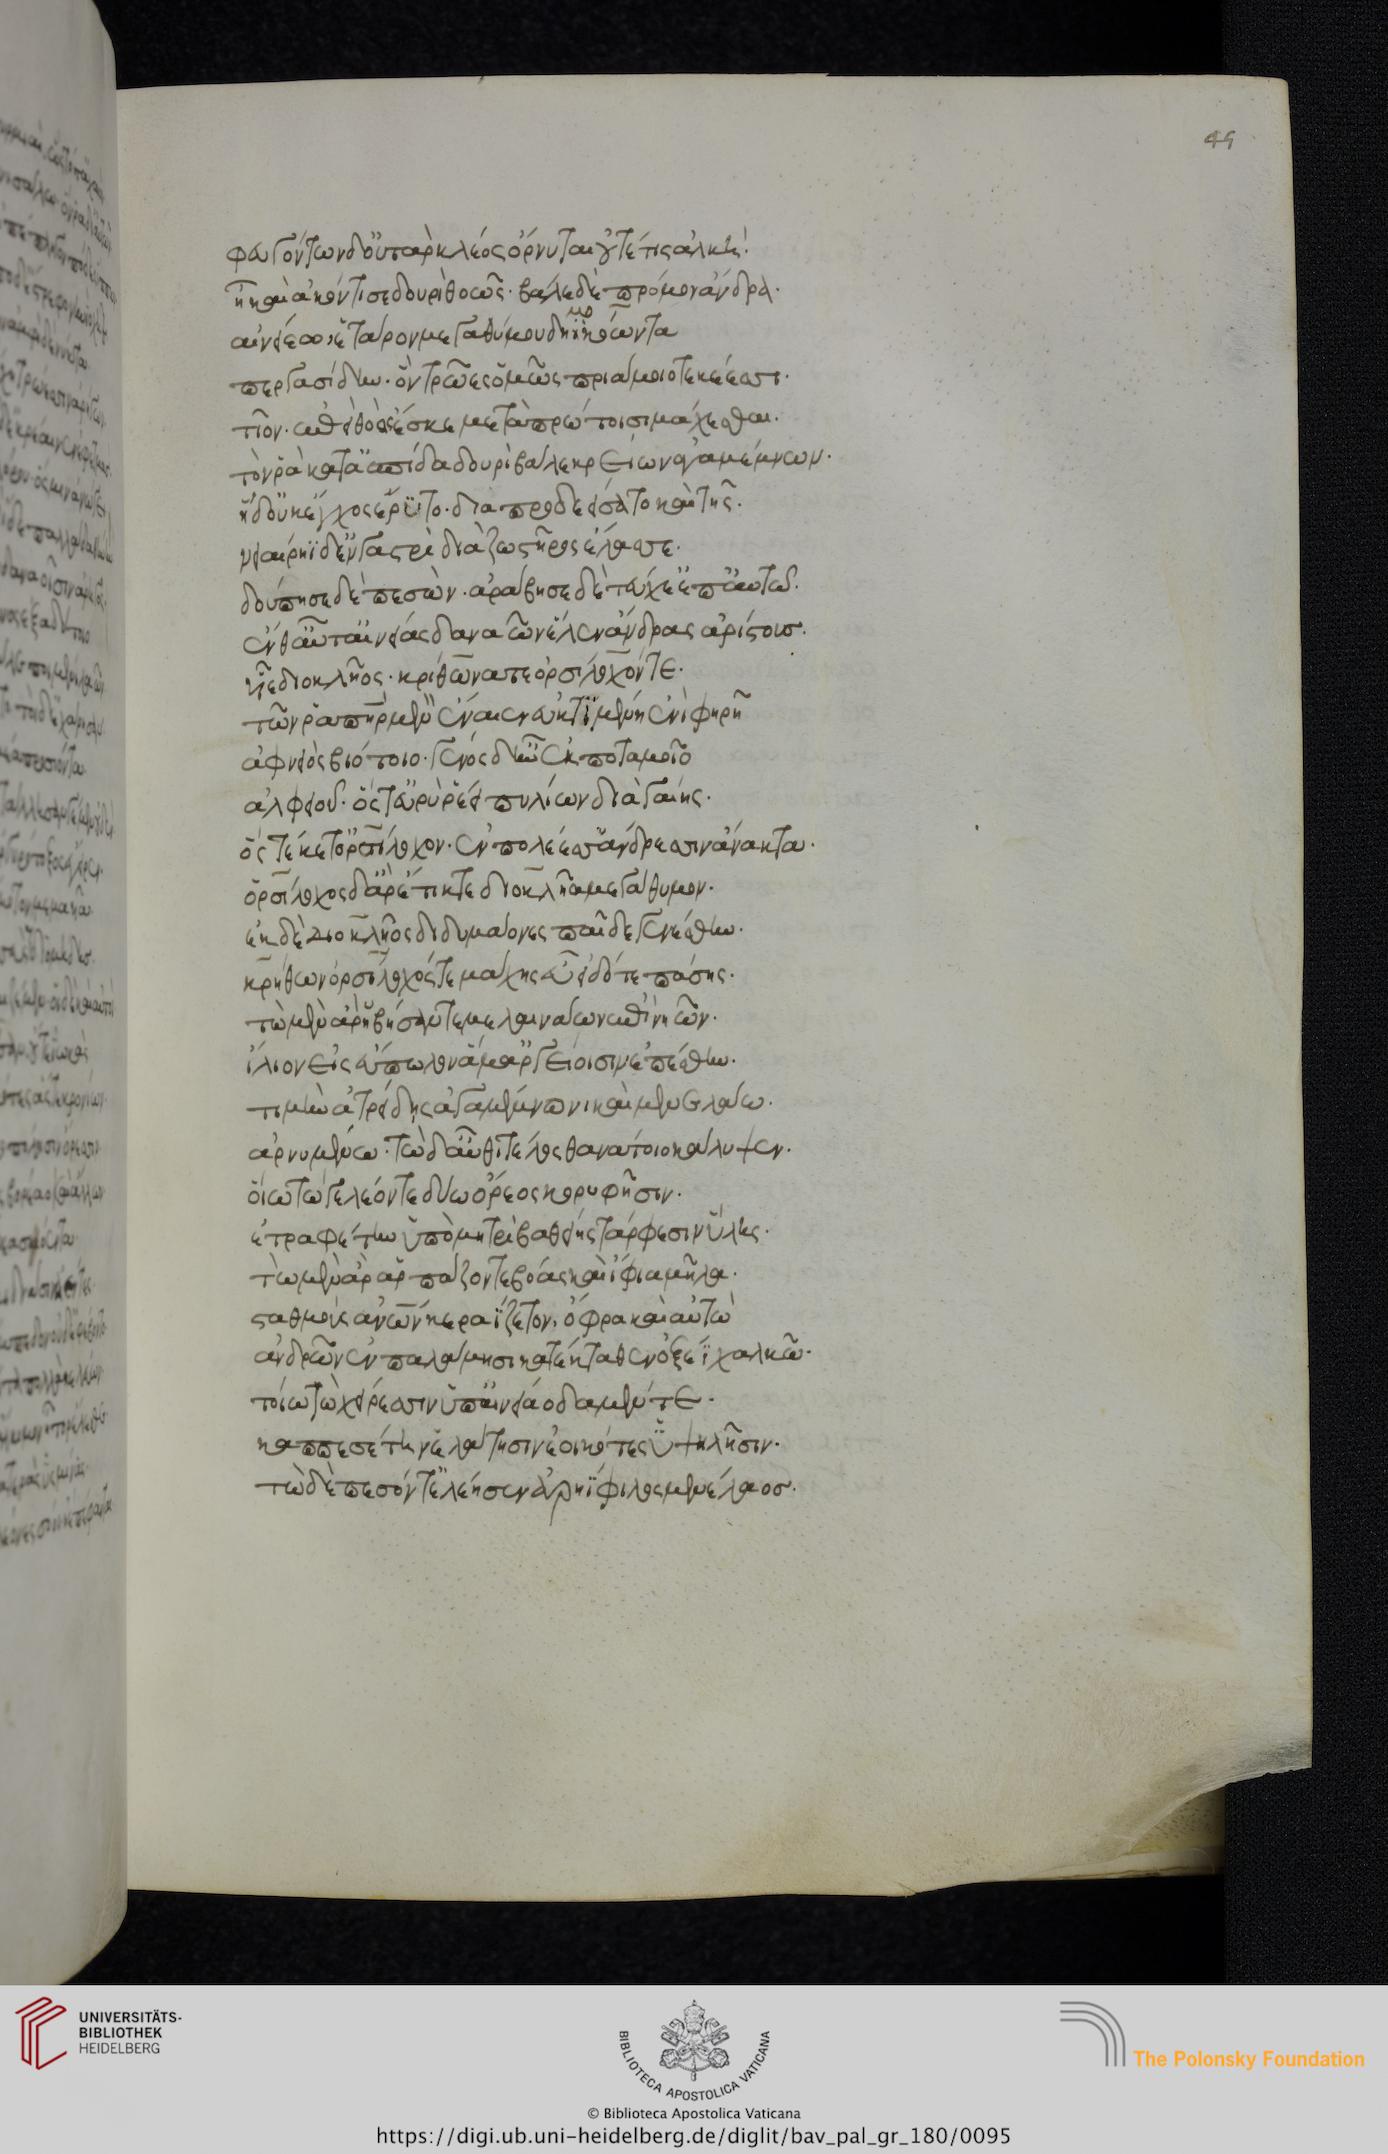 45
φευγόντων δ' οὔτ' ἂρ κλέος ὄρνυται οὔτέ τις ἀλκή.
ἦ καὶ ἀκόντισε δουρὶ θοῶς. βάλε δὲ πρόμον ἄνδρα.
αἰνείεω ἕταρον μεγαθύμου δηϊκόωντα
περγασίδην. ὃν τρῶες ὁμῶς πριάμοιο τέκεσσι
τῖον. ἐπεὶ θοὸς ἔσκε μετὰ πρώτοισι μάχεσθαι.
τὸν ῥα κατ' ἀσπίδα δουρὶ βάλε κρείων ἀγαμέμνων.
ἣ δ' οὐκ ἔγχος ἔρυτο. διὰ πρὸ δὲ εἴσατο καὶ τῆς.
νειαίρῃ δ' ἐν γαστρὶ διὰ ζωστῆρος ἔλασσε.
δούπησε δὲ πεσὼν. ἀράβησε δὲ τεύχε' ἐπ' αὐτῶ.
ἔνθ' αὖτ' αἰνείας δαναῶν ἕλεν ἄνδρας ἀρίστους.
υἷε διοκλῆος. κρήθωνά τε ὀρσίλοχόν τε.
τῶν ῥα πατὴρ μὲν ἔναιεν ἐϋκτιμένη ἐνὶ φηρῆ
ἀφνειὸς βιότοιο. γένος δ' ἦν ἐκ ποταμοῖο
ἀλφειοῦ. ὅς τ' εὐρὺ ῥέει πυλίων διὰ γαίης.
ὃς τέκετ' ὀρσίλοχον. ἐν πολέεσσ' ἄνδρεσσιν ἄνακτα.
ὀρσίλοχος δ' ἂρ ἔτικτε διοκλῆα μεγάθυμον.
ἐκ δὲ διοκλῆος διδυμάονες παῖδε γενέσθην.
κρήθων ὀρσίλοχός τε μάχης εὖ εἰδότε πάσης.
τὼ μὲν ἄρ' ἡβήσαντε μελαινάων ἐπὶ νηῶν.
ἴλιον εἰς εὔπωλον ἅμ' ἀργείοισιν ἐπέσθην.
τιμὴν ἀτρείδης ἀγαμέμνονι καὶ μενελάω.
ἀρνυμένω. τὼ δ' αὖθι τέλος θανάτοιο κάλυψεν.
οἵω τώ γε λέοντε δύω ὄρεος κορυφῆσιν.
ἐτραφέτην ὑπὸ μητρὶ βαθείης τάρφεσιν ὕλης.
τὼ μὲν ἄρ' ἁρπάζοντε βόας καὶ ἴφια μῆλα.
σταθμοὺς ἀνθρώπων κεραΐζετον, ὄφρα καὶ αὐτὼ
ἀνδρῶν ἐν παλάμησι κατέκταθεν ὀξέϊ χαλκῶ.
τοίω τὼ χείρεσσιν ὑπ' αἰνείαο δαμέντε.
καππεσέτην ἐλάτησιν ἐοικότες ὑψηλῆσιν.
τὼ δὲ πεσόντ' ἐλέησεν ἀρηΐφιλος μενέλαος.
UNIVERSITÄTS-
BIBLIOTHEK
HEIDELBERG
BIBLIOTECA APOSTOLICA VATICANA
The Polonsky Foundation
© Biblioteca Apostolica Vaticana
https://digi.ub.uni-heidelberg.de/diglit/bav_pal_gr_180/0095